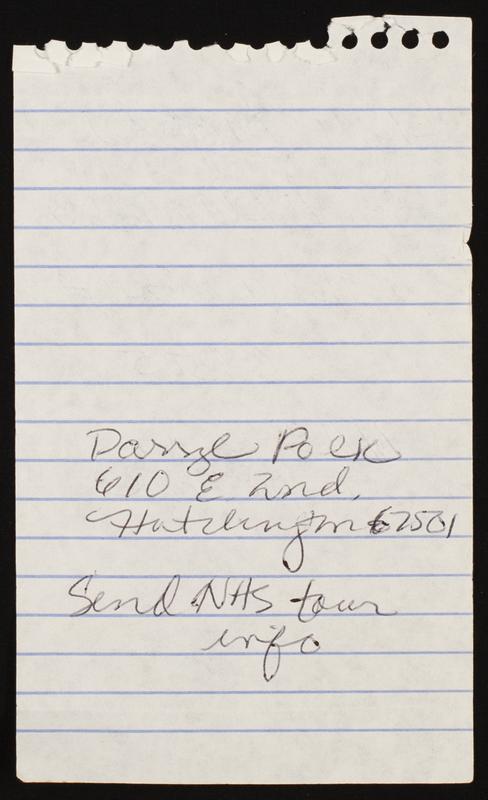 Darryl Polk
610 E 2nd.
Hutchington 67501
Send NHS tour
info